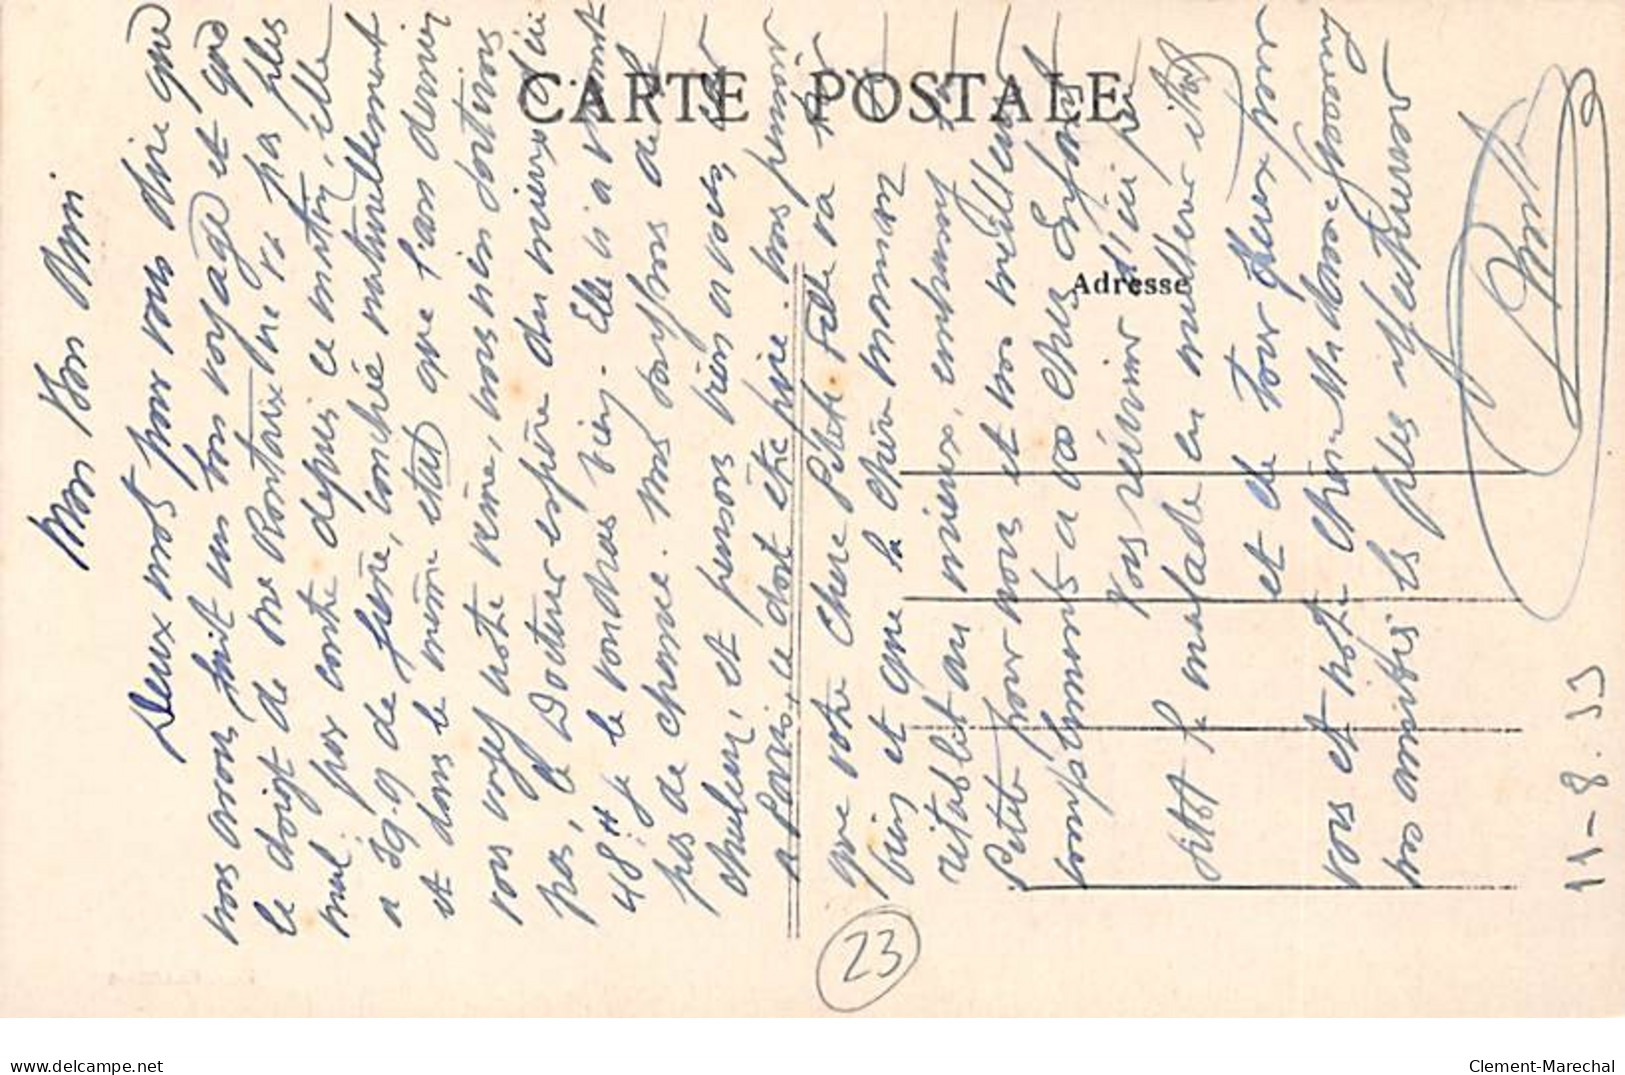 CARTE POSTALE
Adresse
Mon Bon Ami
Deux mots pour vous dire que
nous avons fait un bon voyage et que
le doigt de ne va pas plus
mal, par contre depuis ce matin, elle
a 39-9 de fièvre, contrié naturellement
et dans le même état que l'an dernier
vous voyez notre veine, nous n'en sortirons
pas, le Docteur espère du mieux d'ici
48 H je le voudrais bien. Elle a vomit
pas de chance. Nous souffrons de la
chaleur, et pensons bien a vous, car
a Paris, ce doit être pire. nous pensons
que votre Chère Petite va très
bien et que la Chère maman
rétablit au mieux, embrassez la
Petite pour nous et nos meilleurs
compliments a vos Chers Enfants
Vous réunir d'ici peu
sitôt la malade en meilleur état
et de tout pour
vous et votre Chère Madame
nos amitiés les plus
11-8-33
23
www.delcampe.net
Clement-Marechal